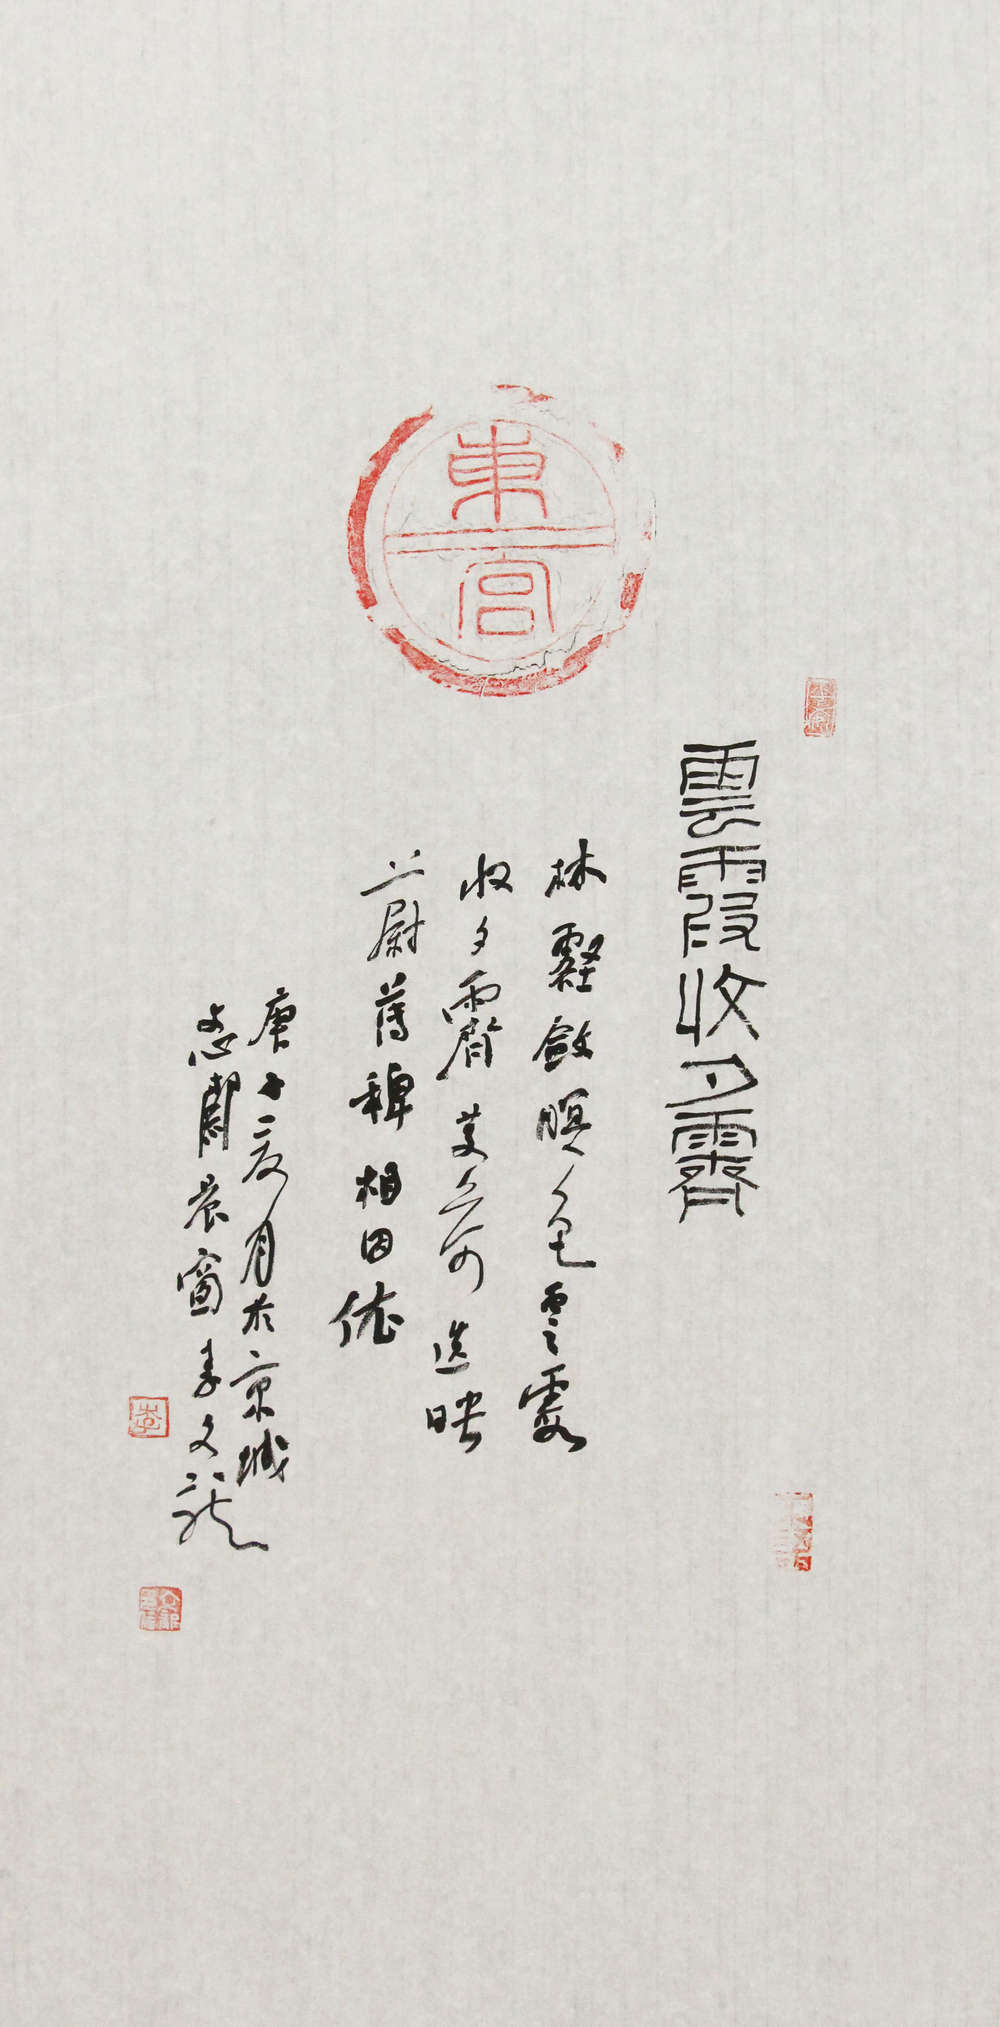 東
宮
雲霞收夕霽
林壑斂暝色雲霞
收夕霽芰荷迭映
蔚蒲稗相因依
庚子夏月於京城
晨窗李文龍